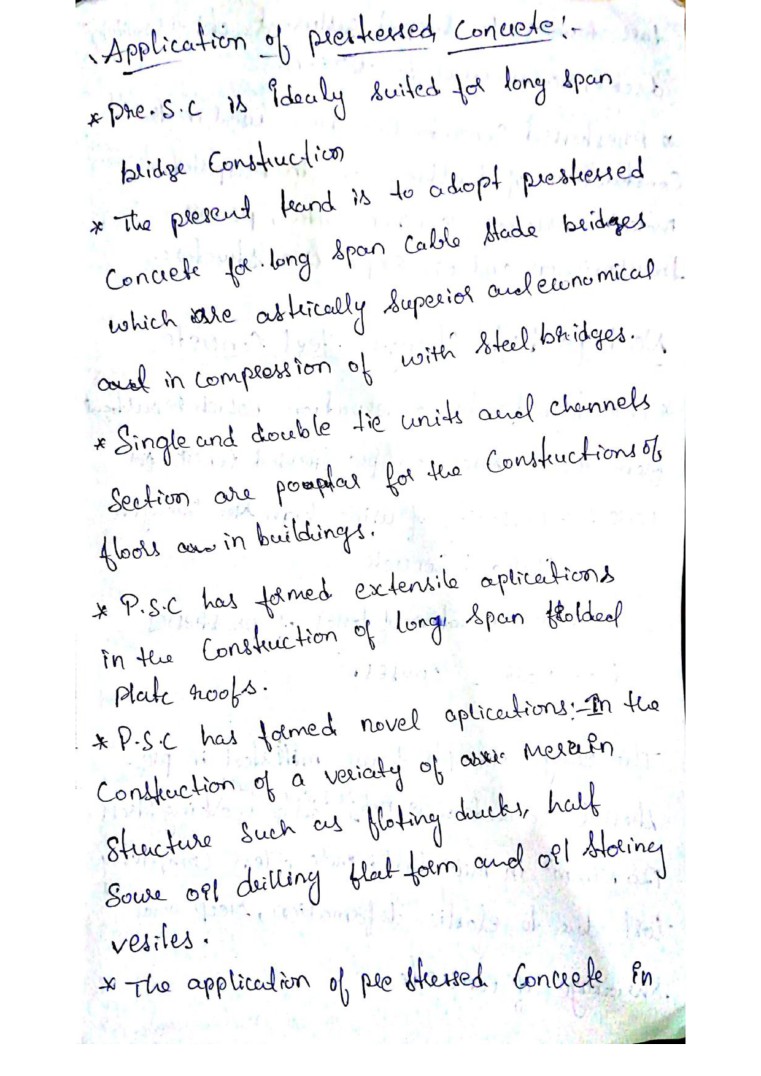 Application of prestressed Concrete:-
* Pre.S.C is Idealy suited for long span
bridge Construction
* The present trand is to adopt prestressed
Concrete for long span Cable stade bridges
which are astrically superior and economical
and in compression of with steel, bridges.
* Single and double tie units and channels
Section are pouplar for the Constructions of
floors in buildings.
* P.S.C has formed extensile aplications
in the Construction of long span folded
plate roofs.
* P.S.C has formed novel aplications:- In the
Construction of a veriaty of Merein
structure such as floting ducks, half
Soure oil drilling flat form and oil storing
vesiles.
* The application of pre stressed Concrete in